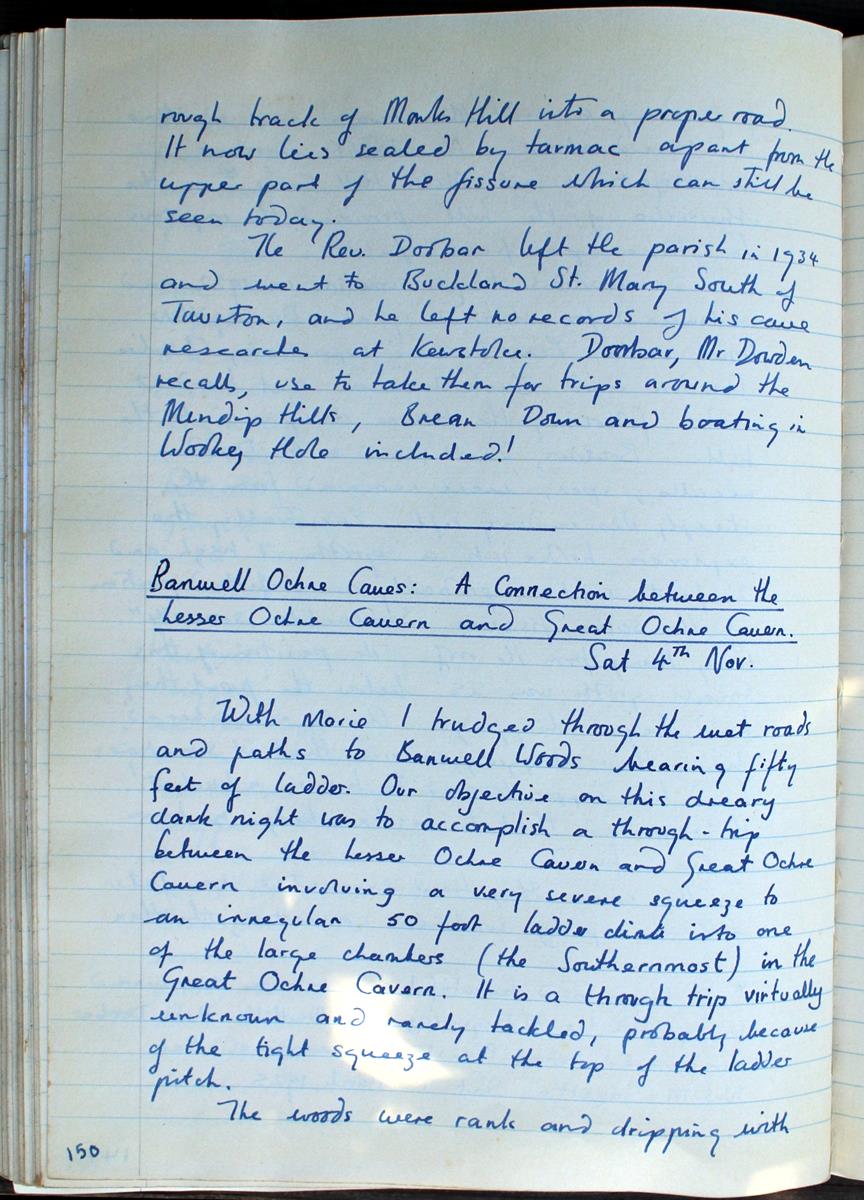 rough track of Monks Hill into a proper road.
It now lies sealed by tarmac apart from the
upper part of the fissure which can still be
seen today.
The Rev. Doorbar left the parish in 1934
and went to Buckland St. Mary South of
Taunton, and he left no records of his cave
researches at Kewstoke. Doorbar, Mr Dowden
recalls, use to take them for trips around the
Mendip Hills, Brean Down and boating in
Wookey Hole included!
Banwell Ochre Caves: A Connection between the
Lesser Ochre Cavern and Great Ochre Cavern.
Sat 4th Nov.
With Marie I trudged through the wet roads
and paths to Banwell Woods bearing fifty
feet of ladder. Our objective on this dreary
dark night was to accomplish a through-trip
between the Lesser Ochre Cavern and Great Ochre
Cavern involving a very severe squeeze to
an irregular 50 foot ladder climb into one
of the large chambers (the Southernmost) in the
Great Ochre Cavern. It is a through trip virtually
unknown and rarely tackled, probably because
of the tight squeeze at the top of the ladder
pitch.
The woods were rank and dripping with
150